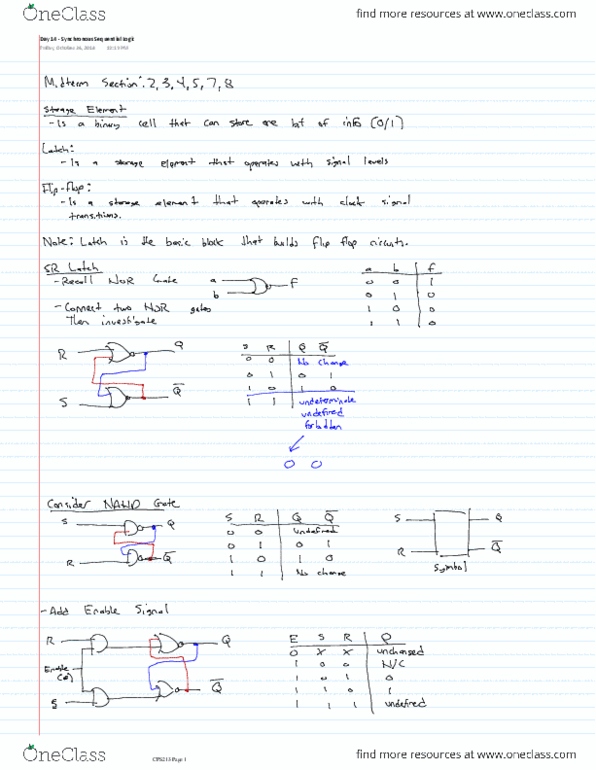 OneClass
find more resources at www.oneclass.com
Day 14 - Synchronous Sequential Logic
Friday, October 24, 2014
Midterm Section: 2, 3, 4, 5, 7, 8
Storage Element
- Is a binary cell that can store one bit of info (0/1)
Latch:
- Is a storage element that operates with signal levels
Flip-flop:
- Is a storage element that operates with clock signal
transitions.
Note: Latch is the basic block that builds flip flop circuits.
SR Latch
- Recall NOR Gate
a
b
F
a b f
0 0 1
0 1 0
1 0 0
1 1 0
- Connect two NOR gates
Then investigate
R
S
Q
Q̅
S R Q Q̅
0 0 No change
0 1 0 1
1 0 1 0
1 1 undeterminate
undefined
forbidden
0 0
Consider NAND Gate
S
R
Q
Q̅
S R Q Q̅
0 0 undefined
0 1 0 1
1 0 1 0
1 1 No change
S
R
Q
Q̅
Symbol
- Add Enable Signal
R
Enable
S
Q
Q̅
E S R Q
0 X X unchanged
1 0 0 N/C
1 0 1 0
1 1 0 1
1 1 1 undefined
OneClass
CPS213 Page 1
find more resources at www.oneclass.com